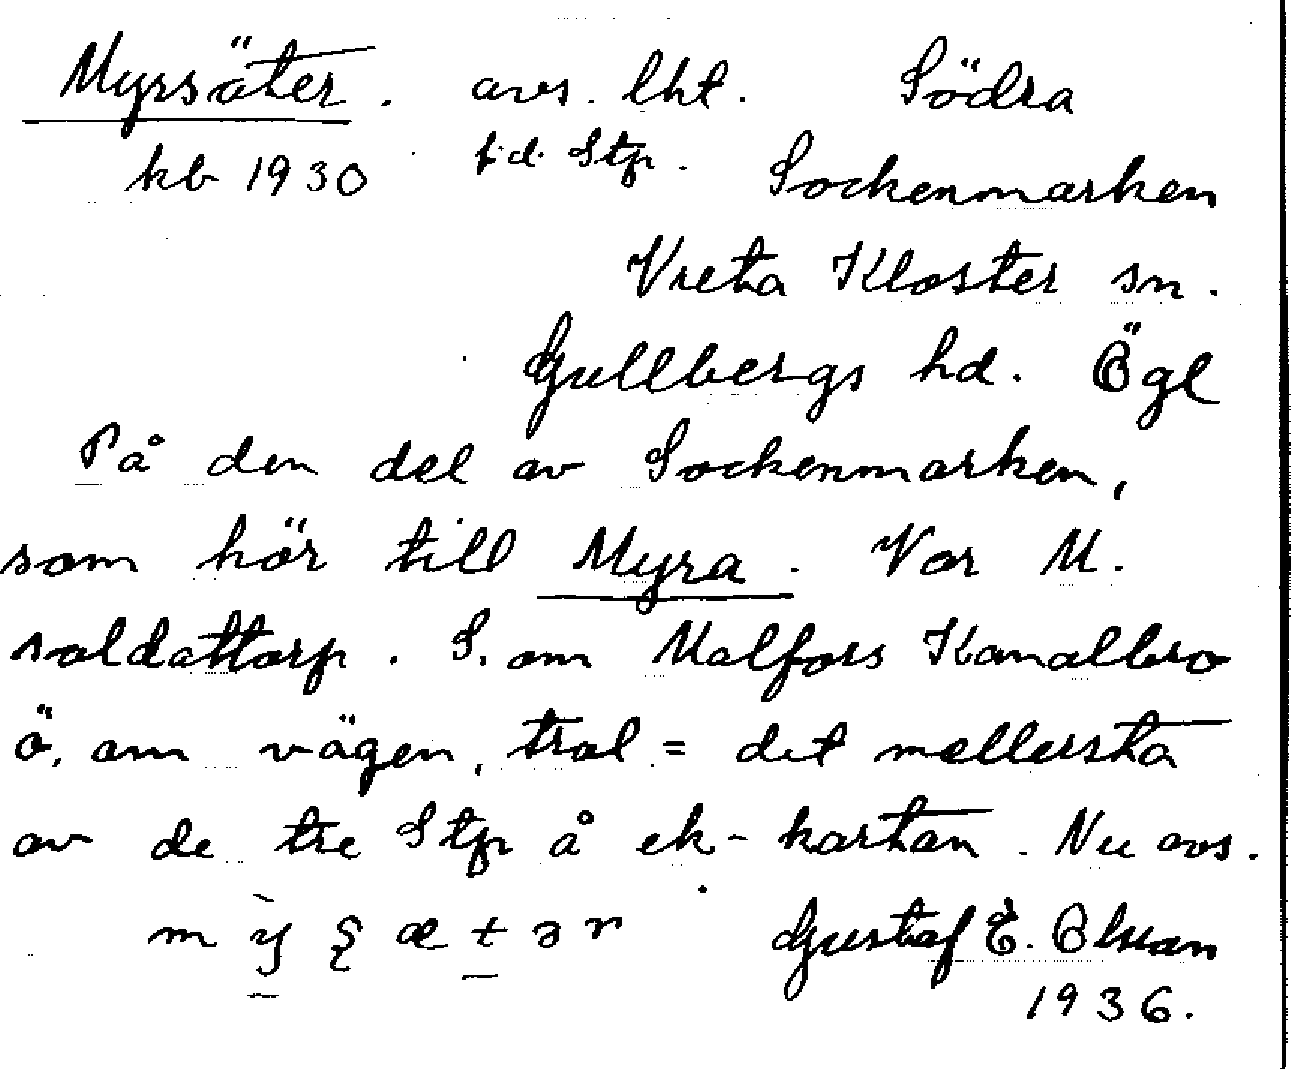 Myrsäter. avs. lht. Södra
kb 1930 f.d. Stp. Sockenmarken
Vreta Kloster sn.
Gullbergs hd. Ögl
På den del av Sockenmarken,
som hör till Myra. Var M.
soldattorp. S. om Malfors Kanalbro
ö. om vägen, trol = det mellersta
av de tre Stp å ek-kartan. Nu avs.
Gustaf E. Olsson
1936.